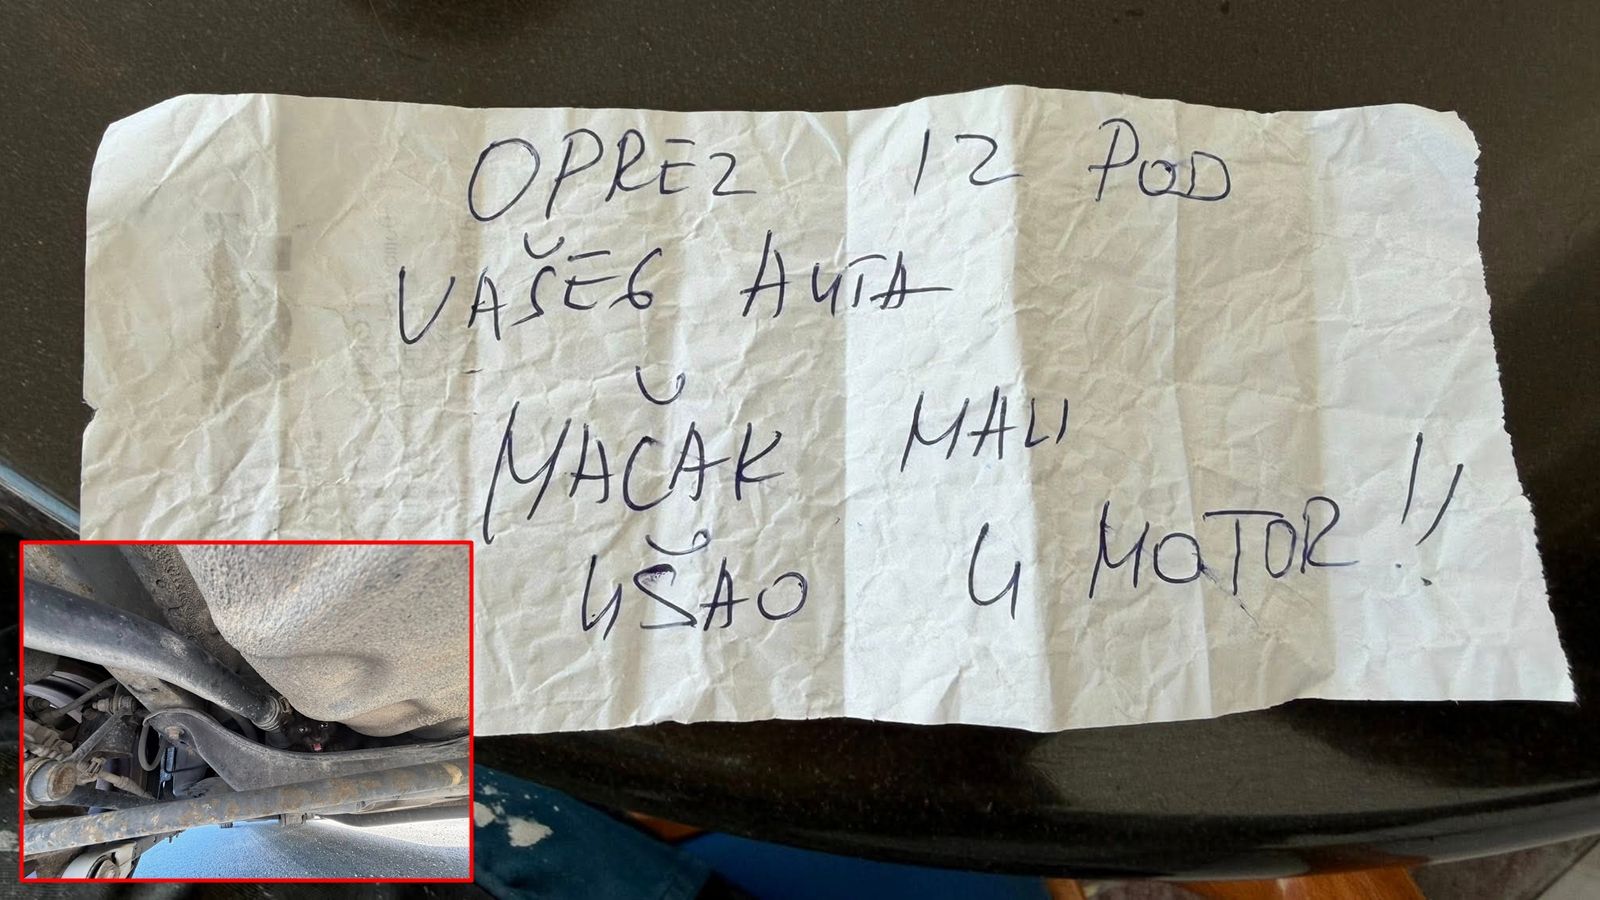 OPREZ IZ POD
VAŠEG AUTA
MAČAK MALI
UŠAO U MOTOR!!